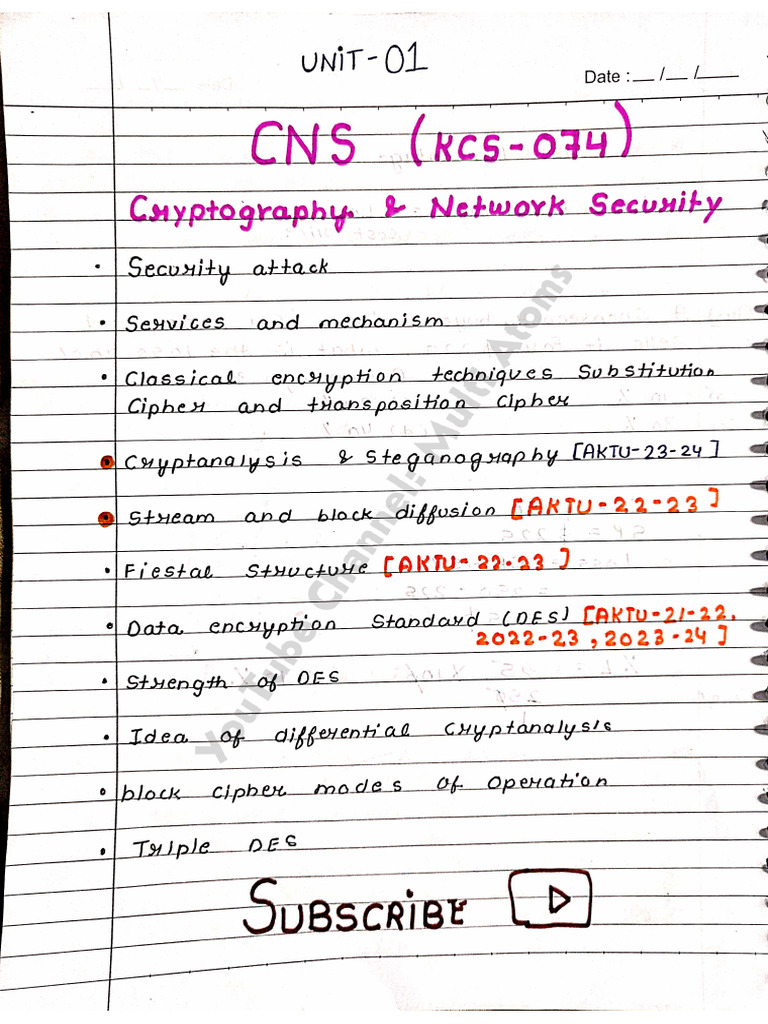 UNIT-01
Date : __ /__ /____
CNS (KCS-074)
Cryptography & Network Security
• Security attack
• Services and mechanism
• Classical encryption techniques Substitution
Cipher and transposition Cipher
• Cryptanalysis & Steganography [AKTU-23-24]
• Stream and block diffusion [AKTU-22-23]
• Fiestal Structure [AKTU-22-23]
• Data encryption Standard (DES) [AKTU-21-22,
2022-23, 2023-24]
• Strength of DES
• Idea of differential Cryptanalysis
• block cipher modes of operation
• Triple DES
SUBSCRIBE
YouTube Channel: Multi Atoms